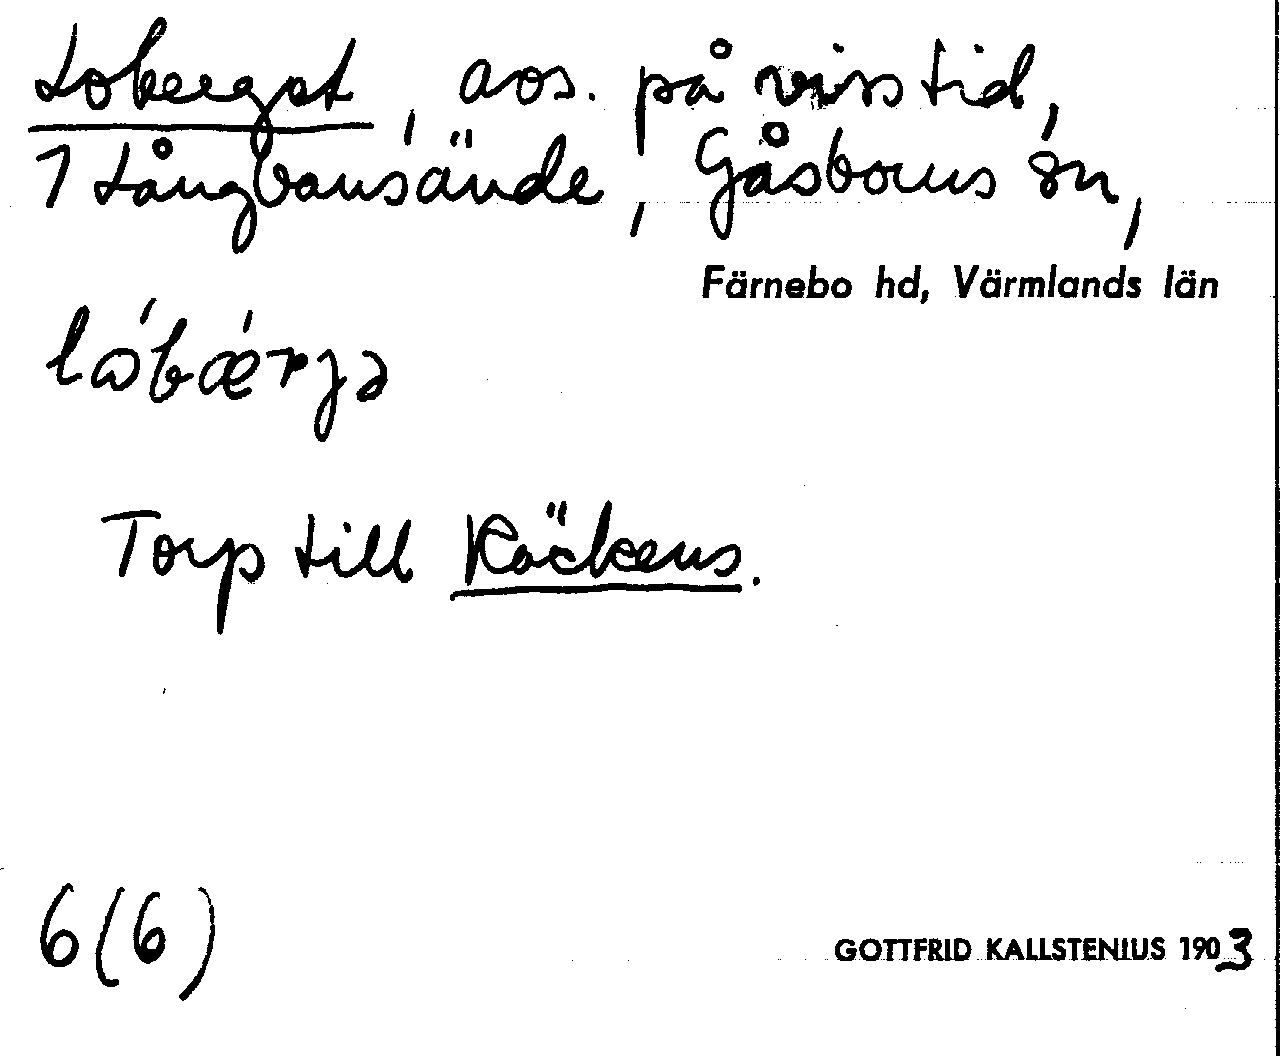 Loberget, avs. på viss tid,
1 Långbansände, Gåsborns sn,
Färnebo hd, Värmlands län
lɷ́bǽrjə
Torp till Räckens.
6(6)
GOTTFRID KALLSTENIUS 1903